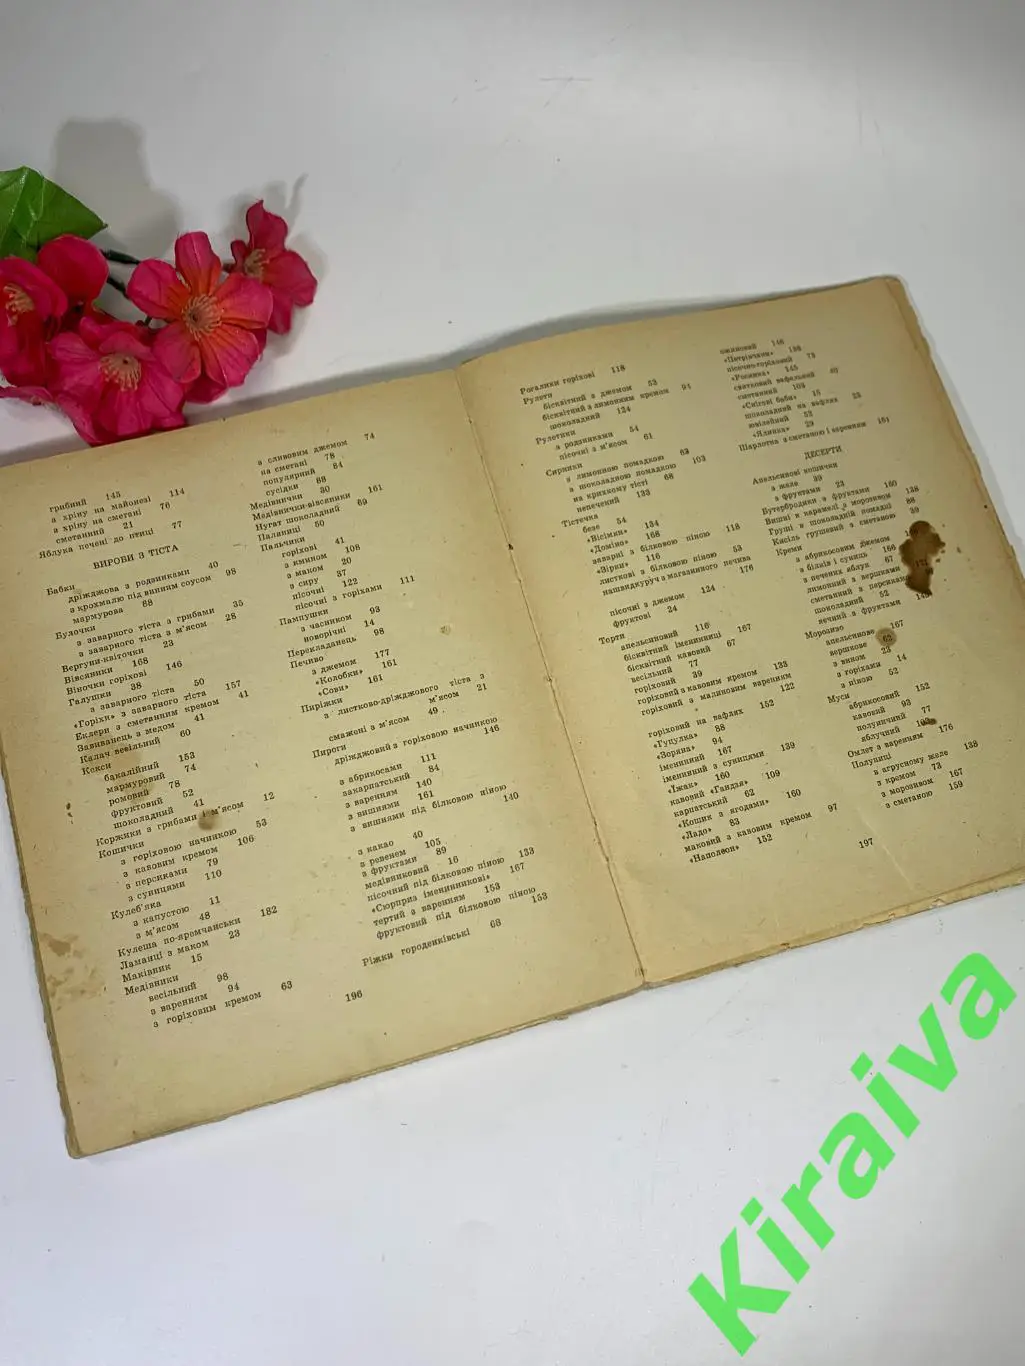 грибний 145
з хріну на майонезі 114
з хріну на сметані 76
сметанний 21
Яблука печені до птиці 77
ВИРОБИ З ТІСТА
Бабки
дріжджова з родзинками 40
з крохмалю під винним соусом 98
мармурова 88
Булочки
з заварного тіста з грибами 35
з заварного тіста з м'ясом 28
Вергуни-квіточки 23
Вівсяники 168
Віночки горіхові 146
Галушки 38
з заварного тіста 50
«Горіхи» з заварного тіста 157
Еклери з сметанним кремом 41
Завиванець з медом 41
Калач весільний 60
Кекси
бакалійний 153
мармуровий 74
ромовий 78
фруктовий 52
шоколадний 41
Коржики з грибами і м'ясом 12
Кошички
з горіховою начинкою 53
з кавовим кремом 106
з персиками 79
з суницями 110
Кулеб'яка
з капустою 11
з м'ясом 48
Кулеша по-яремчанськи 182
Ламанці з маком 23
Маківник 15
Медівники
весільний 98
з варенням 94
з горіховим кремом 63
з сливовим джемом 74
на сметані 78
популярний 84
сусідки 88
Медівнички 30
Медівнички-вівсянички 161
Нугат шоколадний 69
Паляниці 50
Пальчики
горіхові 41
з кмином 108
з маком 20
з сиру 37
пісочні 122
пісочні з горіхами 111
Пампушки
з часником 93
новорічні 14
Перекладанець 98
Печиво
з джемом 177
«Колобки» 161
«Сови» 161
Пиріжки
з листково-дріжджового тіста з
м'ясом 21
смажені з м'ясом 49
Пироги
дріжджовий з горіховою начинкою
146
з абрикосами 111
закарпатський 84
з варенням 140
з вишнями 161
з вишнями під білковою піною
140
з какао 40
з ревенем 105
з фруктами 89
медівниковий 16
пісочний під білковою піною 133
«Сюрприз іменинникові» 167
тертий з варенням 153
фруктовий під білковою піною 153
Ріжки городенківські 68
196
Рогалики горіхові 118
Рулети
бісквітний з джемом 53
бісквітний з лимонним кремом 94
шоколадний 124
Рулетики
з родзинками 54
пісочні з м'ясом 61
Сирники
з лимонною помадкою 63
з шоколадною помадкою 103
на крихкому тісті 68
непечений 133
Тістечка
безе 54
«Вісімки» 134
«Доміно» 168
заварні з білковою піною 118
«Зірки» 116
листкові з білковою піною 53
нашвидкуруч з магазинного печива
176
пісочні з джемом 124
фруктові 24
Торти
апельсиновий 116
бісквітний іменинниці 167
бісквітний кавовий 67
весільний 77
горіховий 39
горіховий з кавовим кремом 138
горіховий з малиновим варенням
122
горіховий на вафлях 152
«Гуцулка» 88
«Зоряна» 94
іменинний 167
іменинний з суницями 139
«Їжак» 160
кавовий «Гандзя» 109
карпатський 62
«Кошик з ягодами» 160
«Ладо» 83
маковий з кавовим кремом 97
«Наполеон» 152
ожиновий 146
«Петрівчани» 138
пісочно-горіховий 73
«Росинка» 145
святковий вафельний 40
сметанний 103
«Снігові баби» 15
шоколадний на вафлях 23
ювілейний 53
«Ялинка» 29
Шарлотка з сметаною і варенням 151
ДЕСЕРТИ
Апельсинові кошички
з желе 39
з фруктами 23
Бутерброди з фруктами 160
Вишні в карамелі з морозивом 138
Груші в шоколадній помадці 88
Кисіль грушевий з сметаною 39
Креми
з абрикосовим джемом
з білків і суниць 166
з печених яблук 67
лимонний з вершками
сметанний з персиками
шоколадний 52
яєчний з фруктами
Морозиво
апельсинове 167
вершкове 63
з вином 23
з горіхами 14
з піною 52
Муси
абрикосовий 152
кавовий 93
полуничний 77
яблучний
Омлет з варенням 176
Полуниці
в агрусному желе 138
з кремом 73
з морозивом 167
з сметаною 159
197
Kiraiva